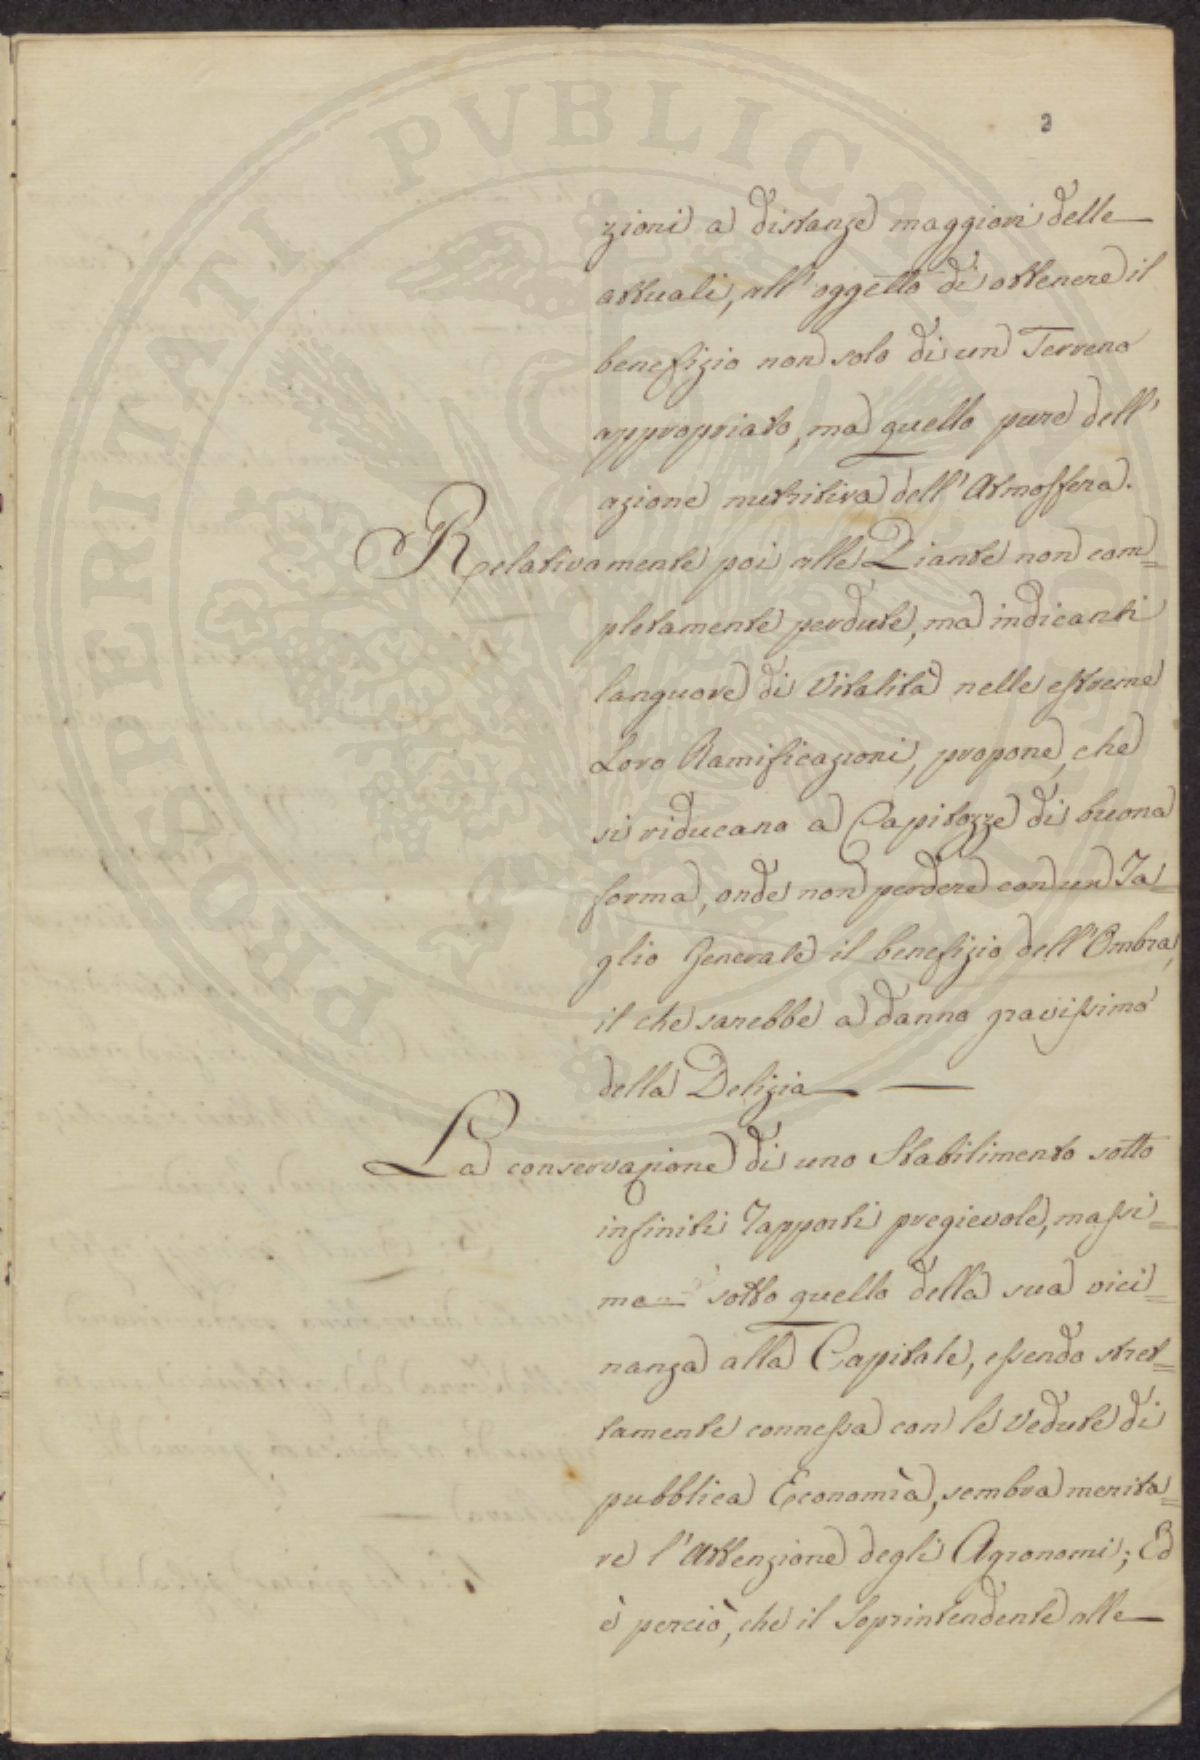 PROSPERITATI PUBLICAE
2
zioni a distanze maggiori delle
attuali, all' oggetto di ottenere il
benefizio non solo di un Terreno
appropriato, ma quello pure dell'
azione nutritiva dell' Atmosfera.
Relativamente poi alle Piante non com=
pletamente perdute, ma indicanti
languore di Vitalità nelle estreme
Loro Ramificazioni, propone, che
si riducano a Capitozze di buona
forma, onde non perdere con un Ta=
glio Generale il benefizio dell' Ombra,
il che sarebbe a danno gravissimo
della Delizia —
La conservazione di uno Stabilimento sotto
infiniti rapporti pregievole, massi=
me sotto quello della sua vici=
nanza alla Capitale, essendo stret=
tamente connessa con le Vedute di
pubblica Economìa, sembra merita=
re l' Attenzione degli Agronomi; Ed
è perciò, che il Soprintendente alle